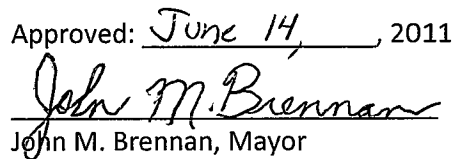 Approved: June 14, 2011
John M. Brennan
John M. Brennan, Mayor